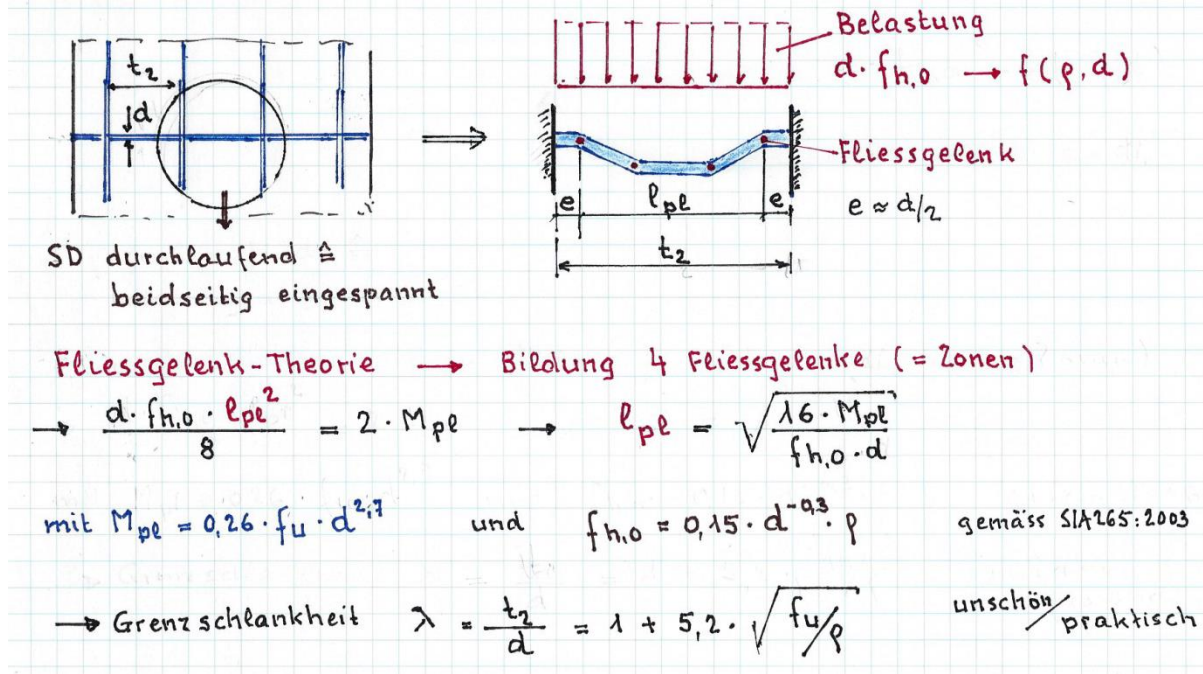 t₂
d
SD durchlaufend ≙
beidseitig eingespannt
Belastung
d · f_h,0 → f(ρ, d)
Fliessgelenk
e l_pl e
e ≈ d/2
t₂
Fliessgelenk-Theorie → Bildung 4 Fliessgelenke (= Zonen)
→ d · f_h,0 · l_pl² / 8 = 2 · M_pl → l_pl = √(16 · M_pl / f_h,0 · d)
mit M_pl = 0,26 · f_u · d^2,7 und f_h,0 = 0,15 · d^-0,3 · ρ gemäss SIA265:2003
→ Grenzschlankheit λ = t₂/d = 1 + 5,2 · √(f_u/ρ) unschön/praktisch